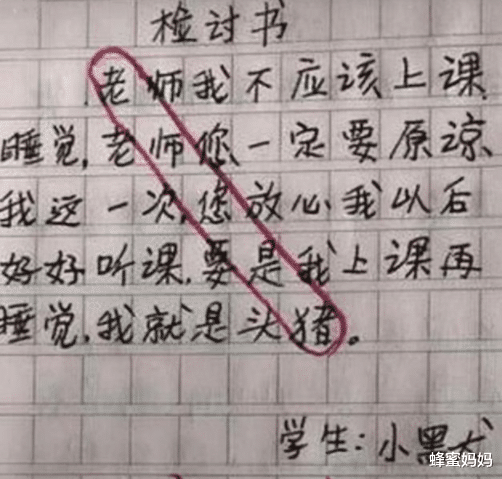 检讨书
老师我不应该上课
睡觉,老师您一定要原谅
我这一次,您放心我以后
好好听课,要是我上课再
睡觉,我就是头猪。
学生:小黑犬
蜂蜜妈妈